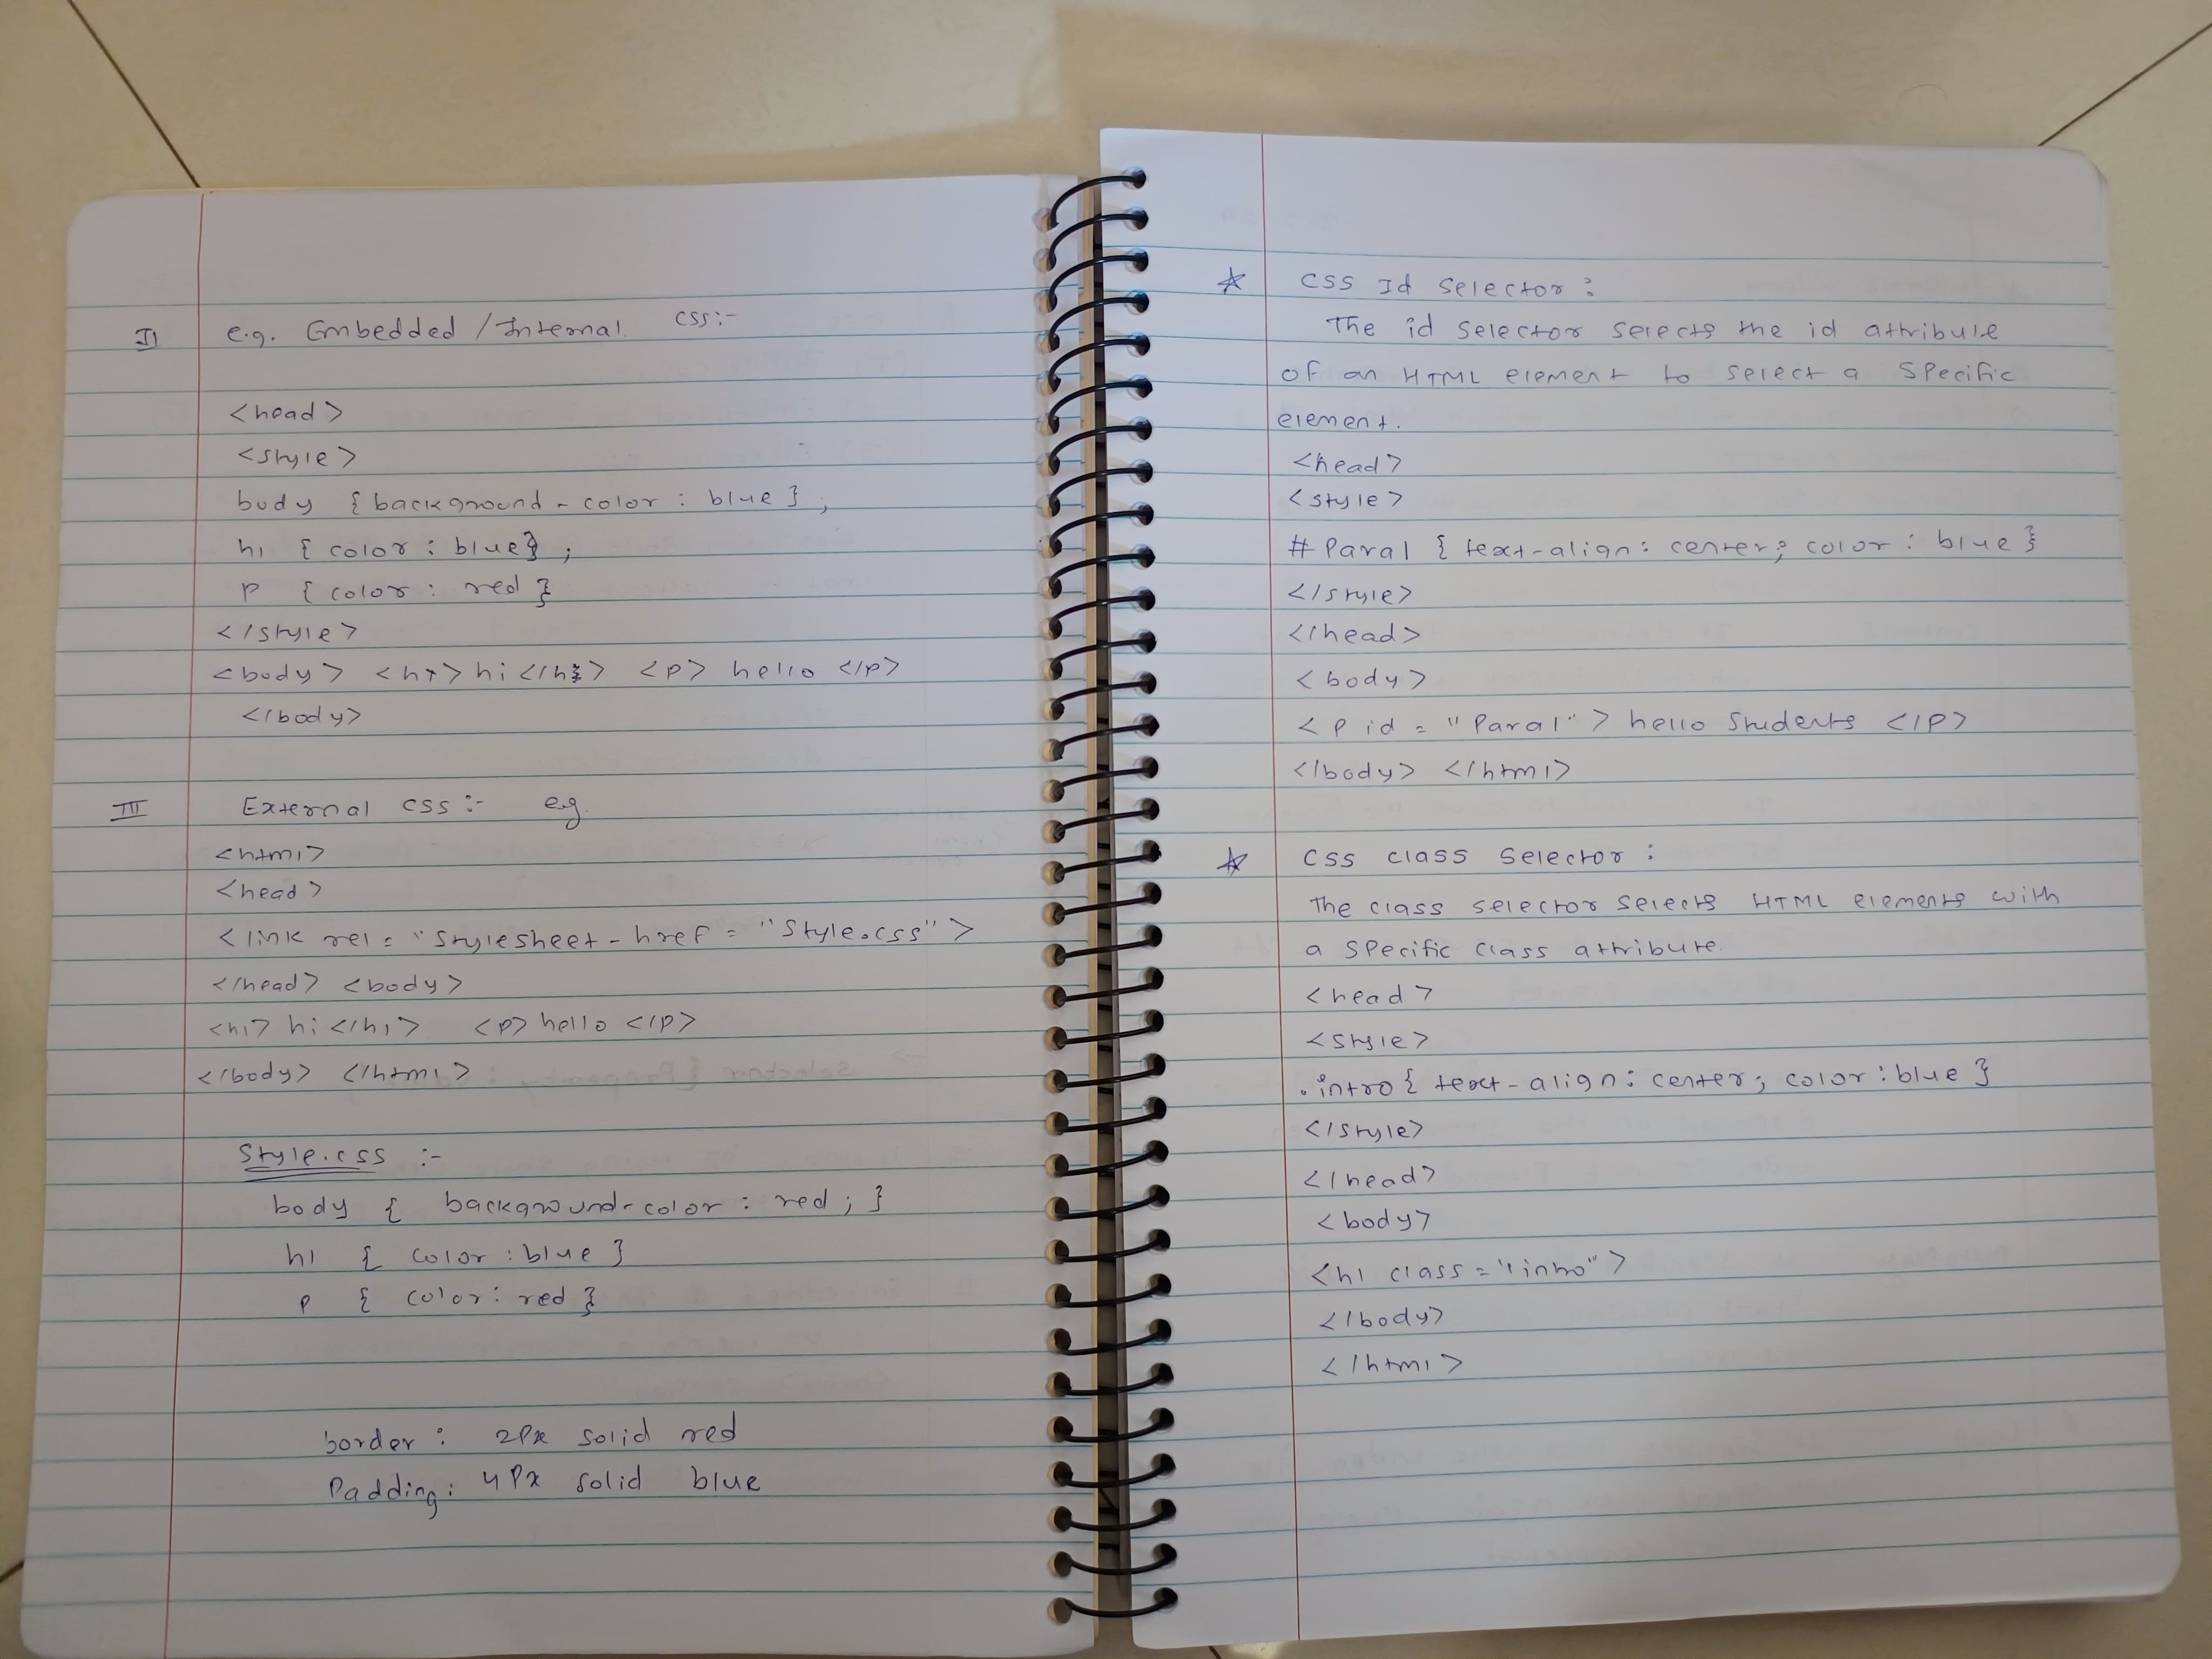 II e.g. Embedded / Internal css:-
<head>
<style>
body { background-color : blue } ;
h1 { color : blue} ;
p { color : red }
</style>
<body> <h1> hi </h1> <p> hello </p>
</body>
III External css :- eg.
<html>
<head>
<link rel = "stylesheet - href = "style.css">
</head> <body>
<h1> hi </h1> <p> hello </p>
</body> </html>
Style.css :-
body { background-color : red ; }
h1 { color : blue }
p { color : red }
border : 2Px solid red
Padding : 4Px solid blue
☆ CSS Id Selector :
The id selector selects the id attribute
of an HTML element to select a specific
element.
<head>
<style>
# Para1 { text-align : center; color : blue }
</style>
</head>
<body>
<p id = "Para1" > hello Students </p>
</body> </html>
☆ CSS class Selector :
The class selector selects HTML elements with
a specific class attribute.
<head>
<style>
.intro { text-align : center ; color : blue }
</style>
</head>
<body>
<h1 class = "intro" >
</body>
</html>